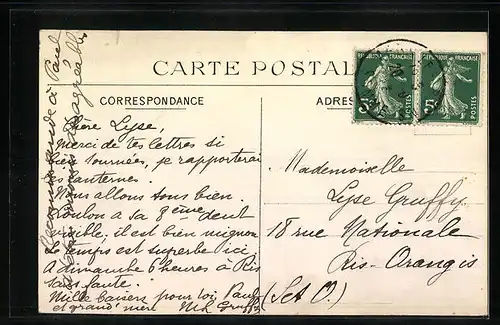 CARTE POSTALE
CORRESPONDANCE
ADRES
REPUBLIQUE FRANÇAISE
5c
POSTES
REPUBLIQUE FRANÇAISE
5c
POSTES
Chère Lyse,
Merci de tes lettres si
bien tournées, je rapporterai
les lanternes.
Nous allons tous bien.
Toulon a sa 8ème dent
visible, il est bien mignon
Le temps est superbe ici
A dimanche 6 heures à Ris
sans faute.
Mille baisers pour toi Paul
et grand'mère Mh Gruffy
Mademoiselle
Lyse Gruffy
18 rue Nationale
Ris-Orangis
(S et O)
à Paul
agréable